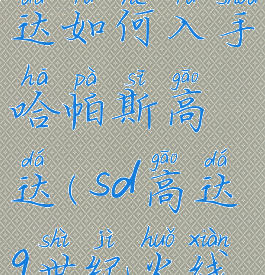 dá rú hé rù shǒu
达如何入手
hā pà sī gāo
哈帕斯高
dá gāo dá
达(sd高达
shì jì huǒ xiàn
9世纪火线